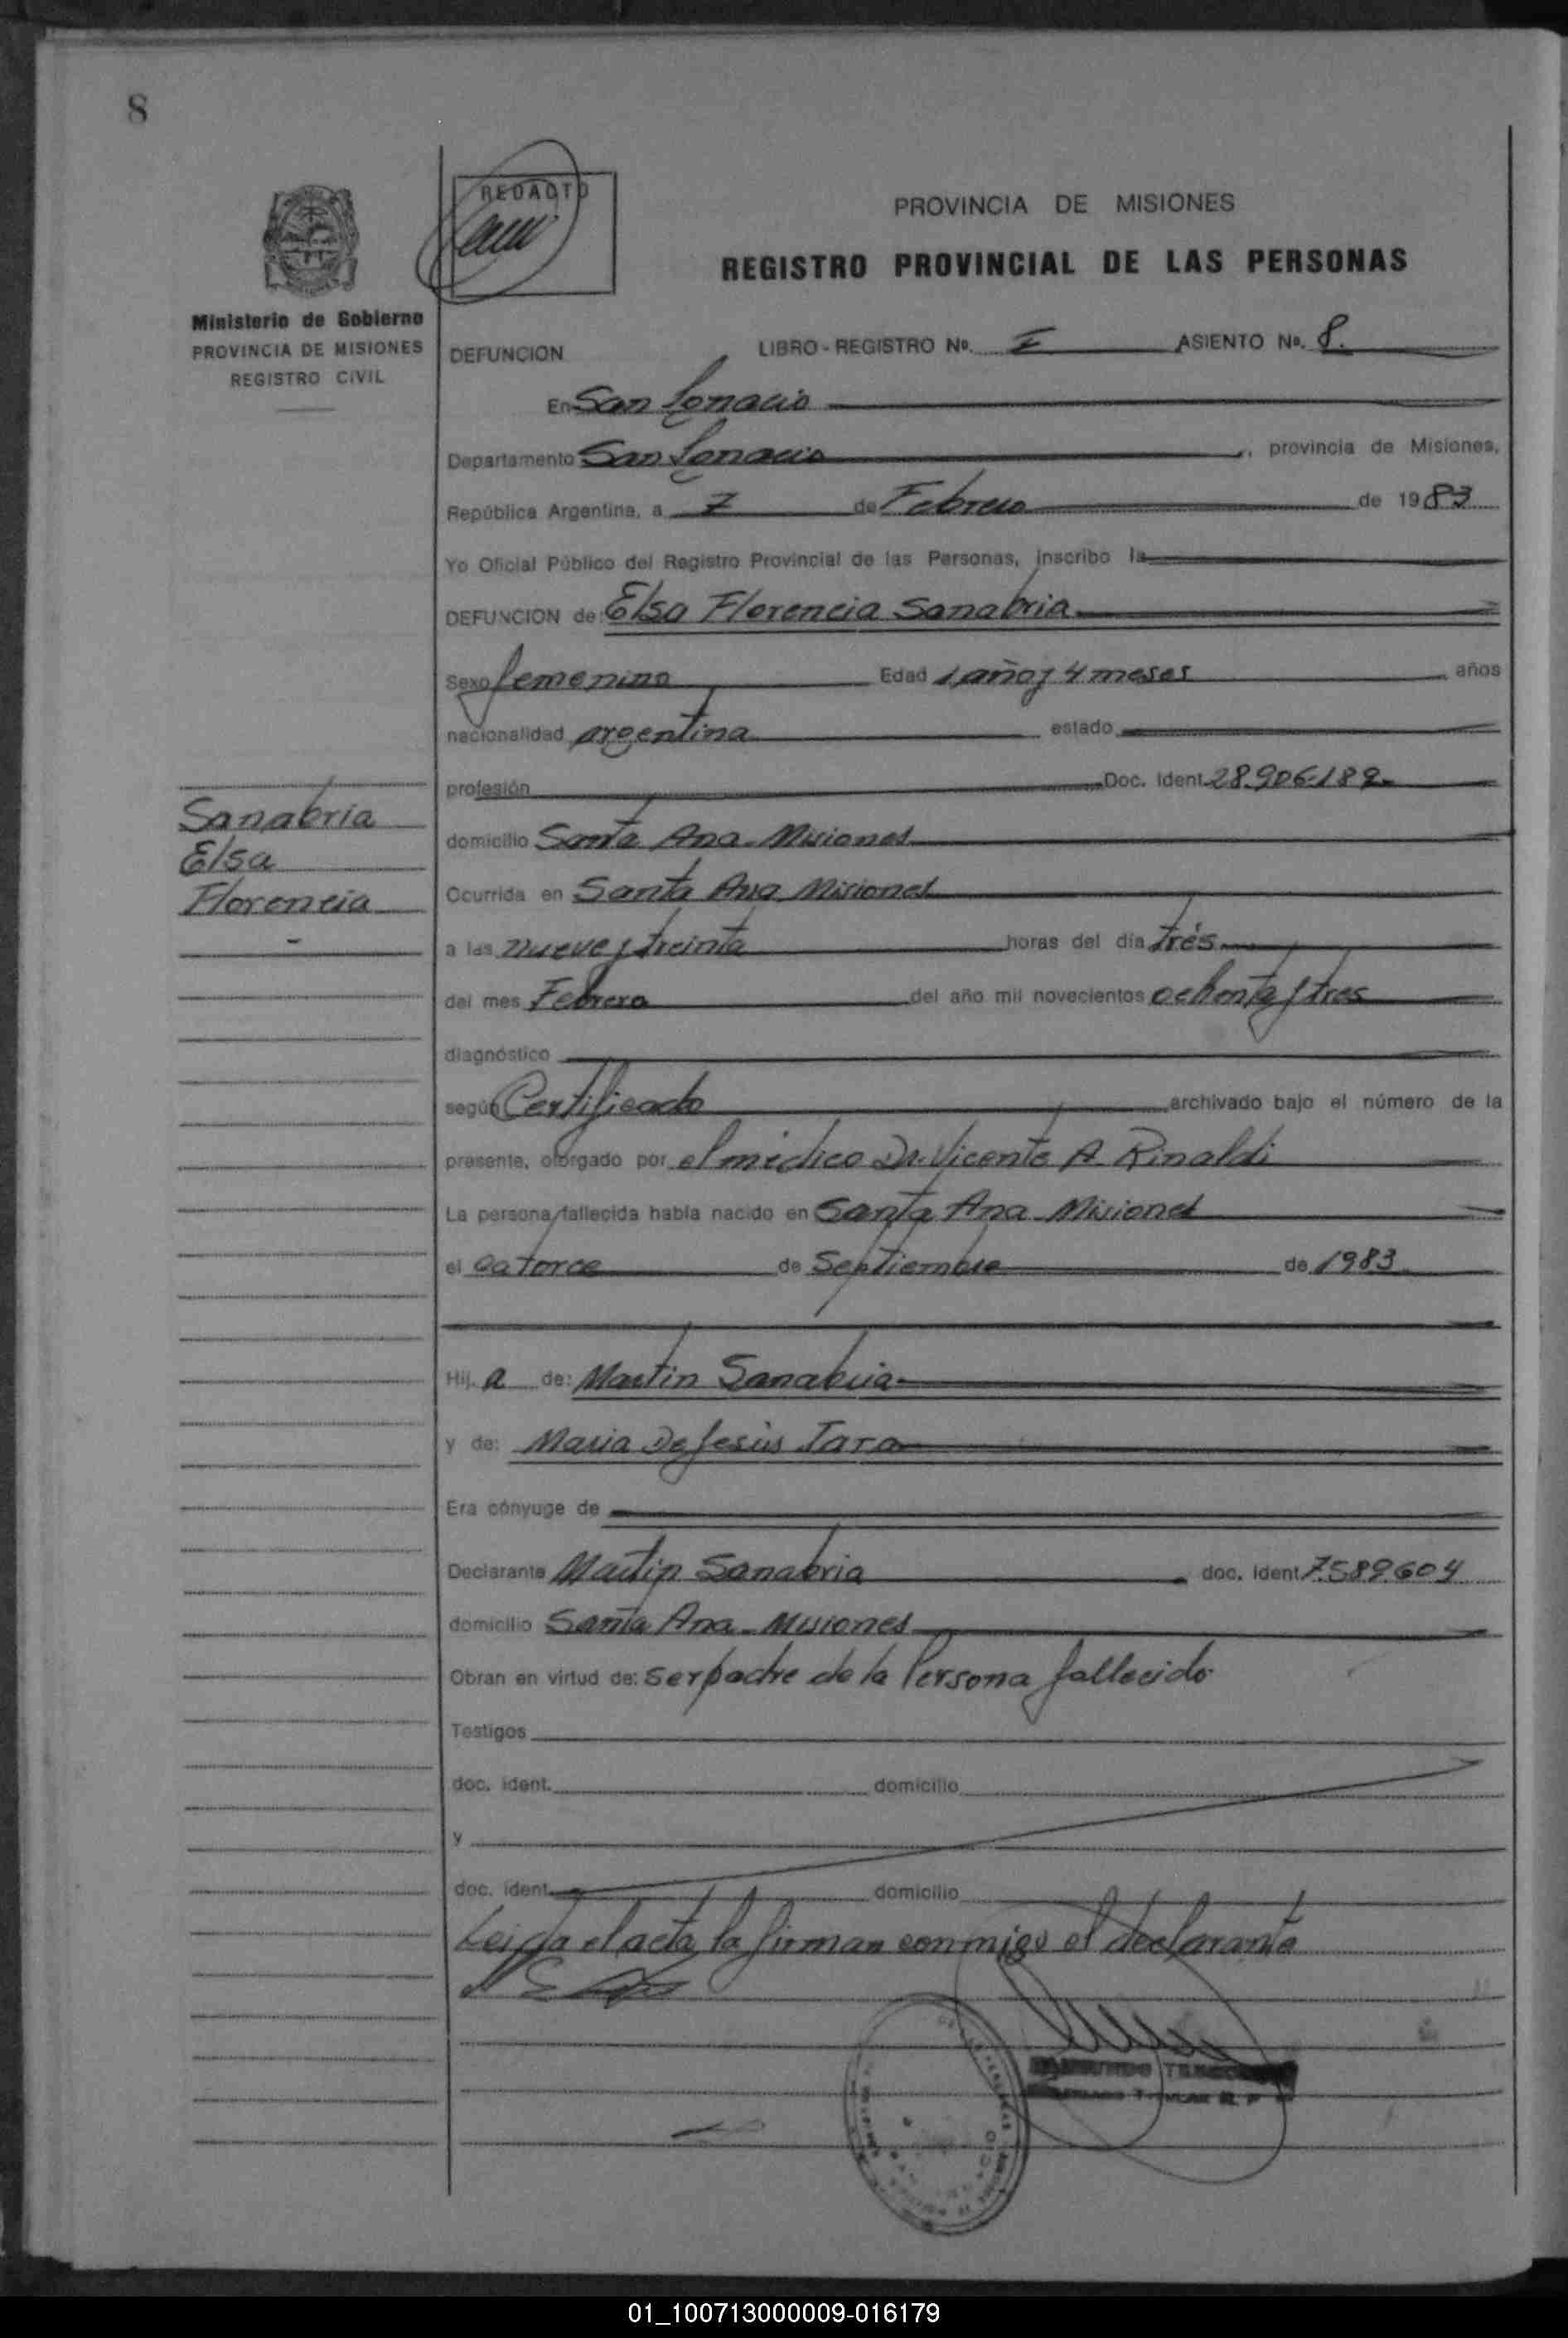 8
REDACTO
PROVINCIA DE MISIONES
REGISTRO PROVINCIAL DE LAS PERSONAS
Ministerio de Gobierno
PROVINCIA DE MISIONES
REGISTRO CIVIL
DEFUNCION LIBRO - REGISTRO No. I ASIENTO No. 8.
En San Ignacio
Departamento San Ignacio, provincia de Misiones,
República Argentina, a 7 de Febrero de 1983
Yo Oficial Público del Registro Provincial de las Personas, inscribo la
DEFUNCION de: Elsa Florencia Sanabria
Sexo femenino Edad 1 año y 4 meses años
nacionalidad argentina estado
profesión Doc. Ident. 28.906.189
Sanabria
Elsa
Florencia
domicilio Santa Ana - Misiones
Ocurrida en Santa Ana Misiones
a las nueve y treinta horas del día trés
del mes Febrero del año mil novecientos ochenta y tres
diagnóstico
según Certificado archivado bajo el número de la
presente, otorgado por el médico Dr. Vicente A. Rinaldi
La persona fallecida había nacido en Santa Ana - Misiones
el catorce de Septiembre de 1983
Hij. a de: Martin Sanabria
y de: Maria De Jesús Jara
Era cónyuge de
Declarante Martin Sanabria doc. ident. 7.589.604
domicilio Santa Ana - Misiones
Obran en virtud de: ser padre de la Persona fallecida
Testigos
doc. ident. domicilio
y
doc. ident. domicilio
Leida el acta, la firman conmigo el declarante
01_100713000009-016179